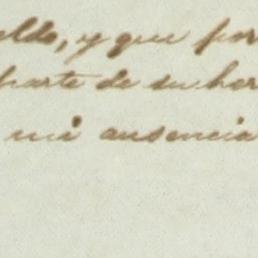 eldo, y que por
parte de su her
mi ausencia